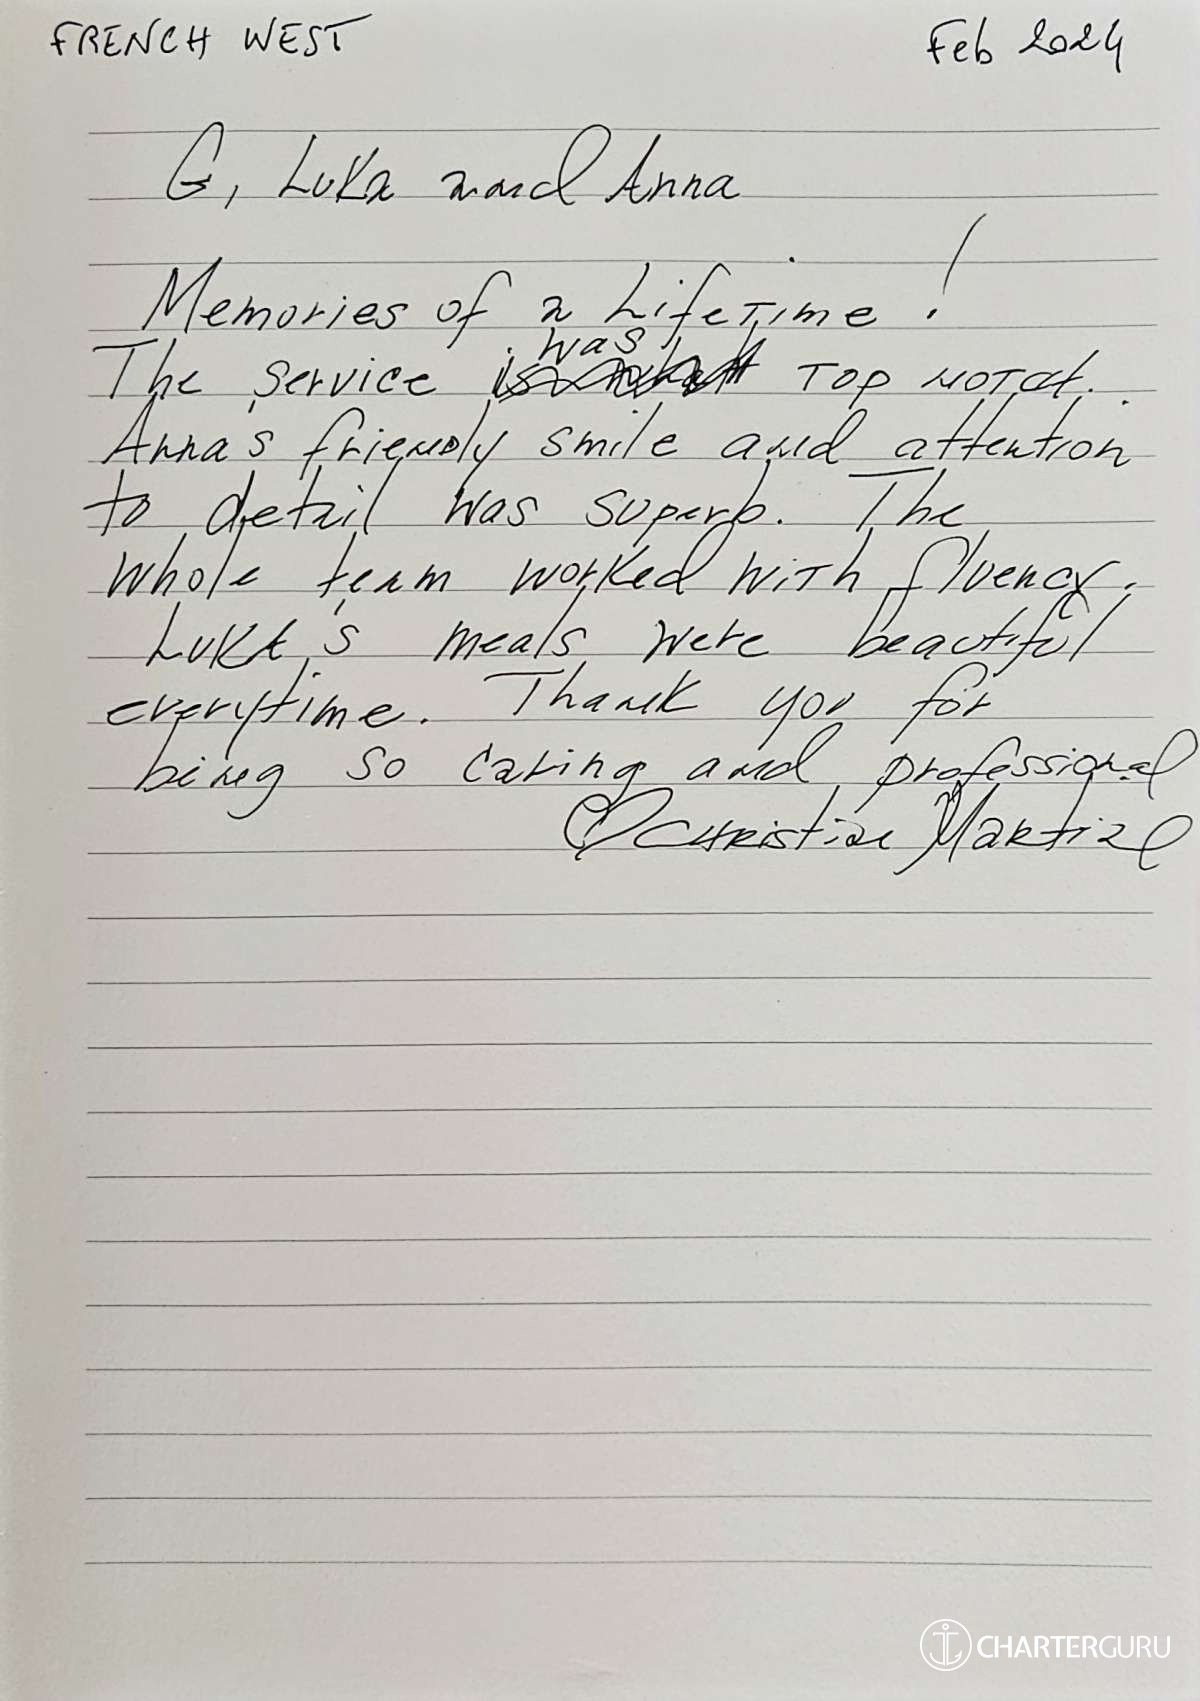 FRENCH WEST Feb 2024
G, Luka and Anna
Memories of a Lifetime!
The service was top notch.
Anna's friendly smile and attention
to detail was superb. The
whole team worked with fluency.
Luka's meals were beautiful
everytime. Thank you for
being so caring and professional
♡ Christine
CHARTERGURU